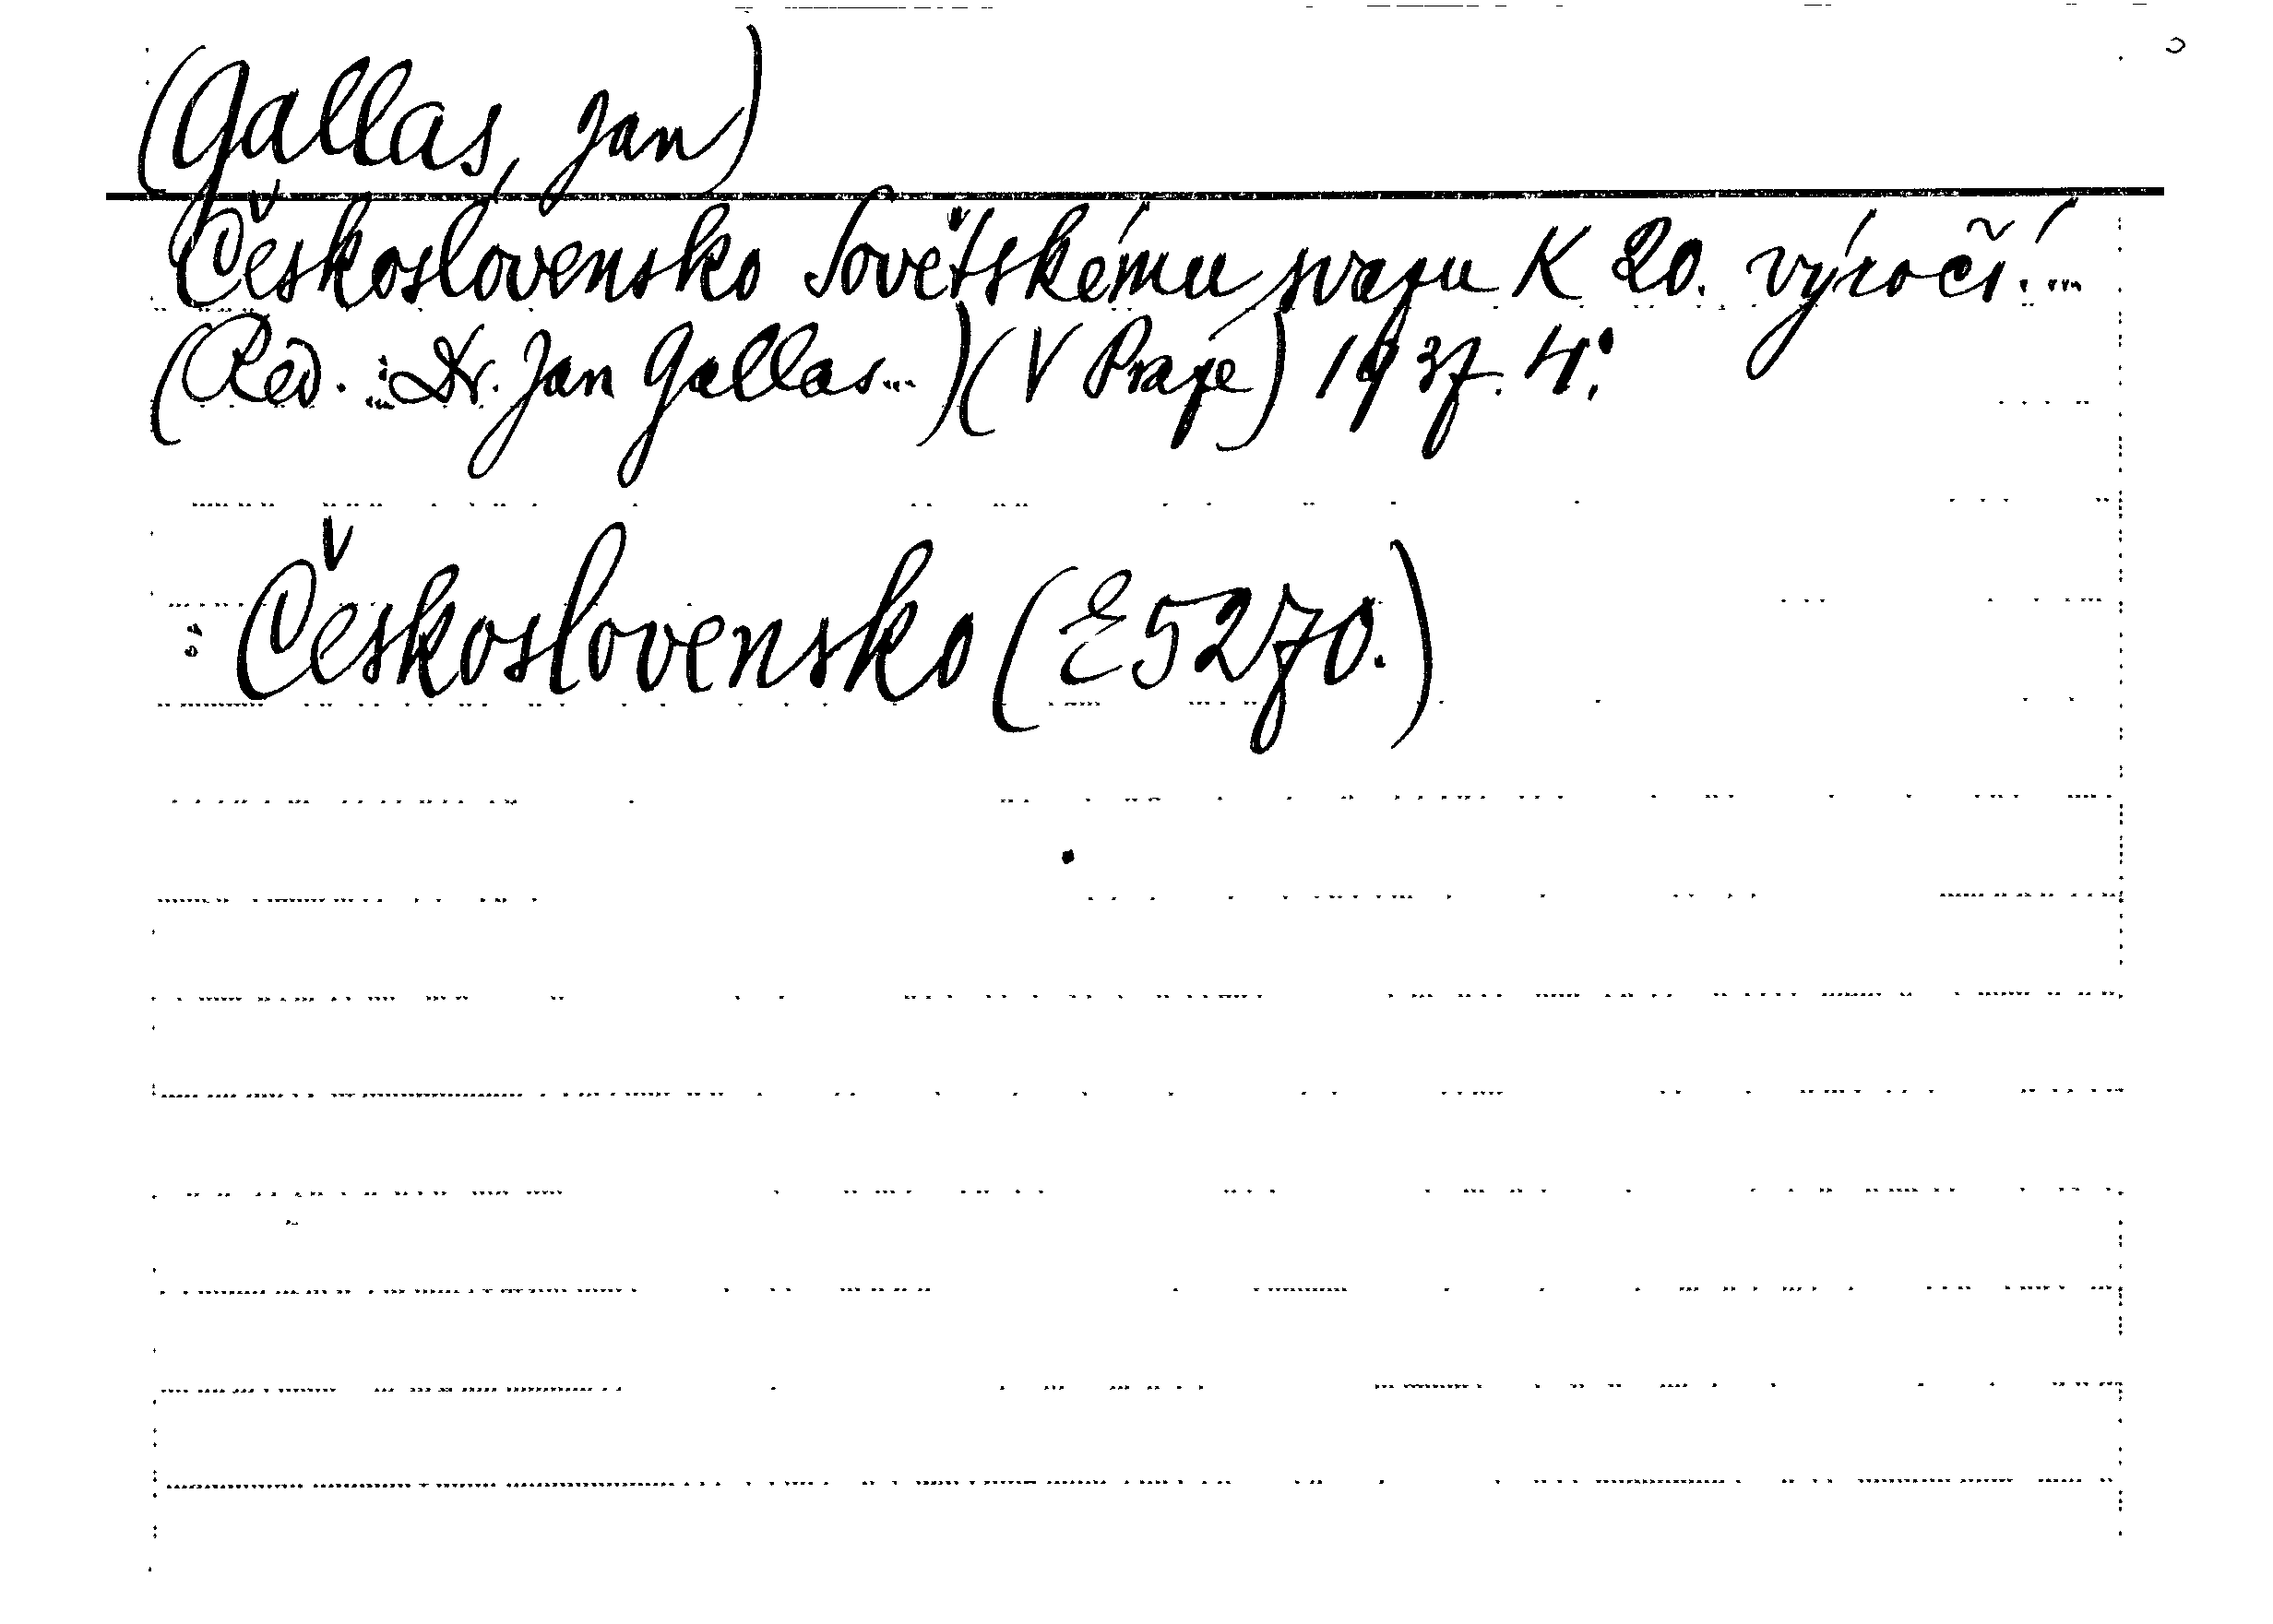 (Gallas, Jan)
Československo Sovětskému svazu K 20. výročí...
(Red.: Dr. Jan Gallas...) (V Praze) 1937. 4°.
Československo (E 5270.)